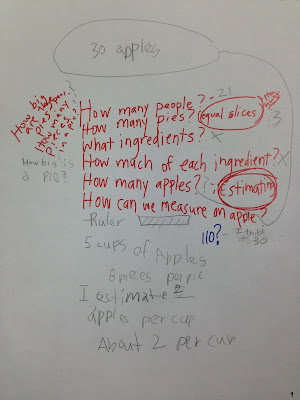 30 apples
How many people? 21
How many pies? equal slices 3
what ingredients? x
How much of each ingredient? x
How many apples? Estimating
How can we measure an apple?
How big are the pies?
How many pieces in a pie?
How big is
a PIO?
Ruler
110?
I think
30
5 cups of Apples
8 pieces per pie
I estimate 2
apples per cup
About 2 per cup
1